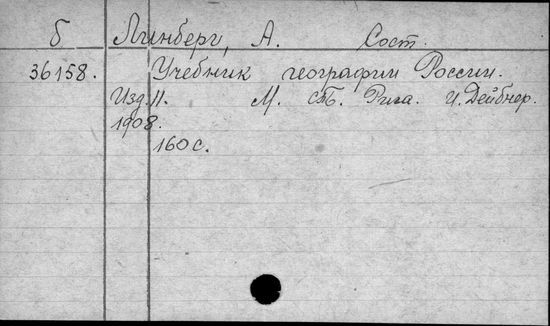 Б Линберг, А. Сост.
36158. Учебник географии России.
Изд. 11. М. СПБ. Рига. И. Дейбнер.
1908.
160 с.